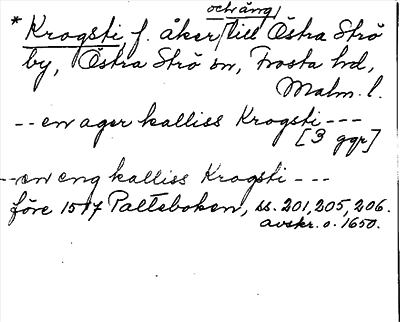 och äng
* Krogsti, f. åker till Östra Strö
by, Östra Strö sn, Frosta hd,
Malm. l.
-- en ager kalliss Krogsti ---
[3 ggr]
-- en eng kalliss Krogsti ---
före 1517 Palteboken, ss. 201, 205, 206.
avskr. o. 1650.